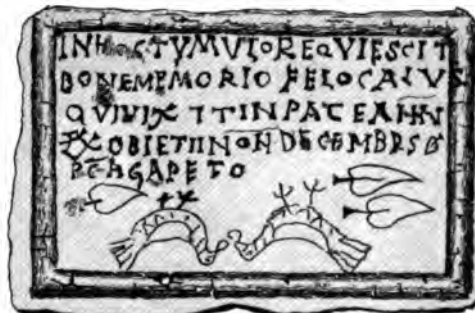 INHOCTVMVLOREQVIESCIT
BONEMEMORIOFELOCALVS
QVIVIXITINPACEANN
OBIETIINONDECEMBRSB
PCAGAPETO